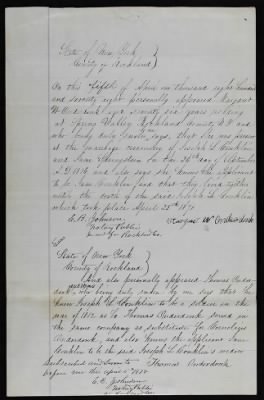 State of New York }
County of Rockland }
On this fifth of April one thousand eight hundred
and seventy eight personally appeared Margaret
W Onderdonk age seventy six years residing
at Spring Valley Rockland County N.Y. and
who being duly says, that she was present
at the marriage ceremony of Joseph L Conklin
and Jane on the 26th day of September
A.D. 1816, and also says she knows the applicant
to be Jane Conklin and that they lived together
until the death of the said Joseph L Conklin
which took place April 25th
C. B. Johnson Margaret W Onderdonk
Notary Public
in and for Rockland Co.
State of New York }
County of Rockland }
And also personally appeared Thomas
Onderdonk, who being duly sworn by me says that he
knew Joseph L Conklin to be a soldier in the
war of 1812 as he Thomas Onderdonk served in
the same company as substitute for
Onderdonk, and also knows the applicant Jane
Conklin to be the said Joseph L Conklin's widow
Subscribed and sworn to Thomas Onderdonk
before me this April 5th 1878
C. B. Johnson
Notary Public